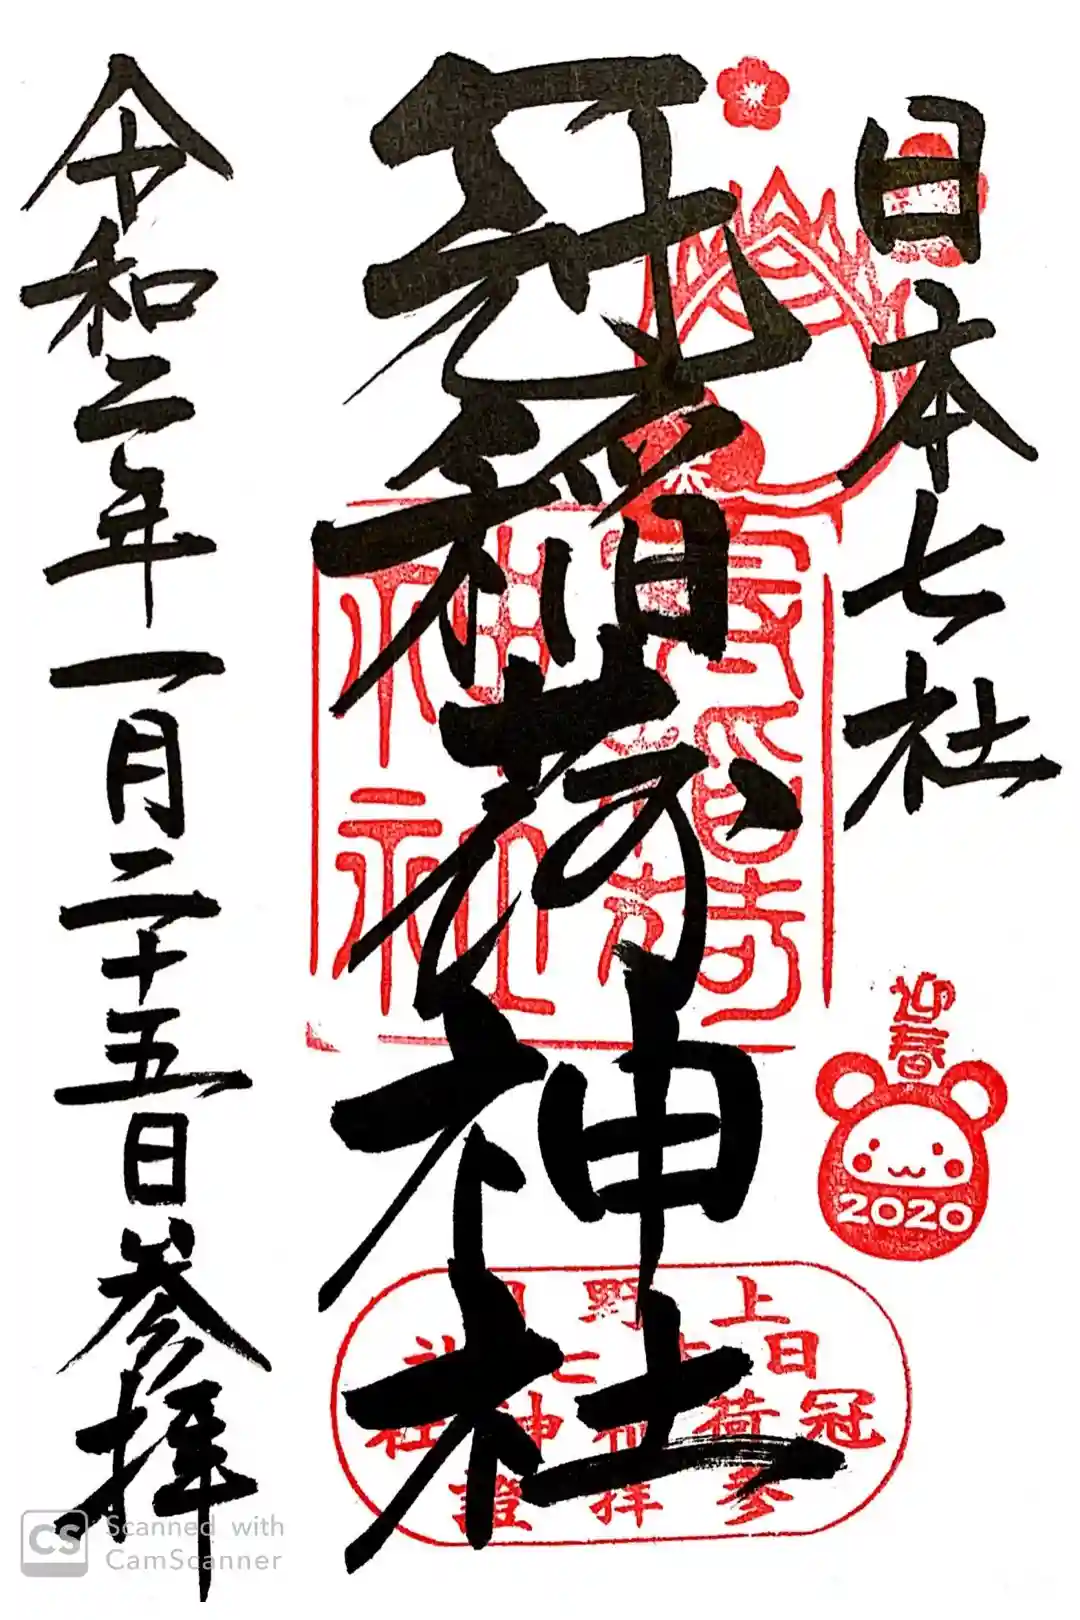 日本七社
冠稲荷神社
令和二年一月二十五日参拝
冠稲荷
神社
迎春
2020
上野国
日本七社
冠稲荷神社
参拝證
CS Scanned with
CamScanner